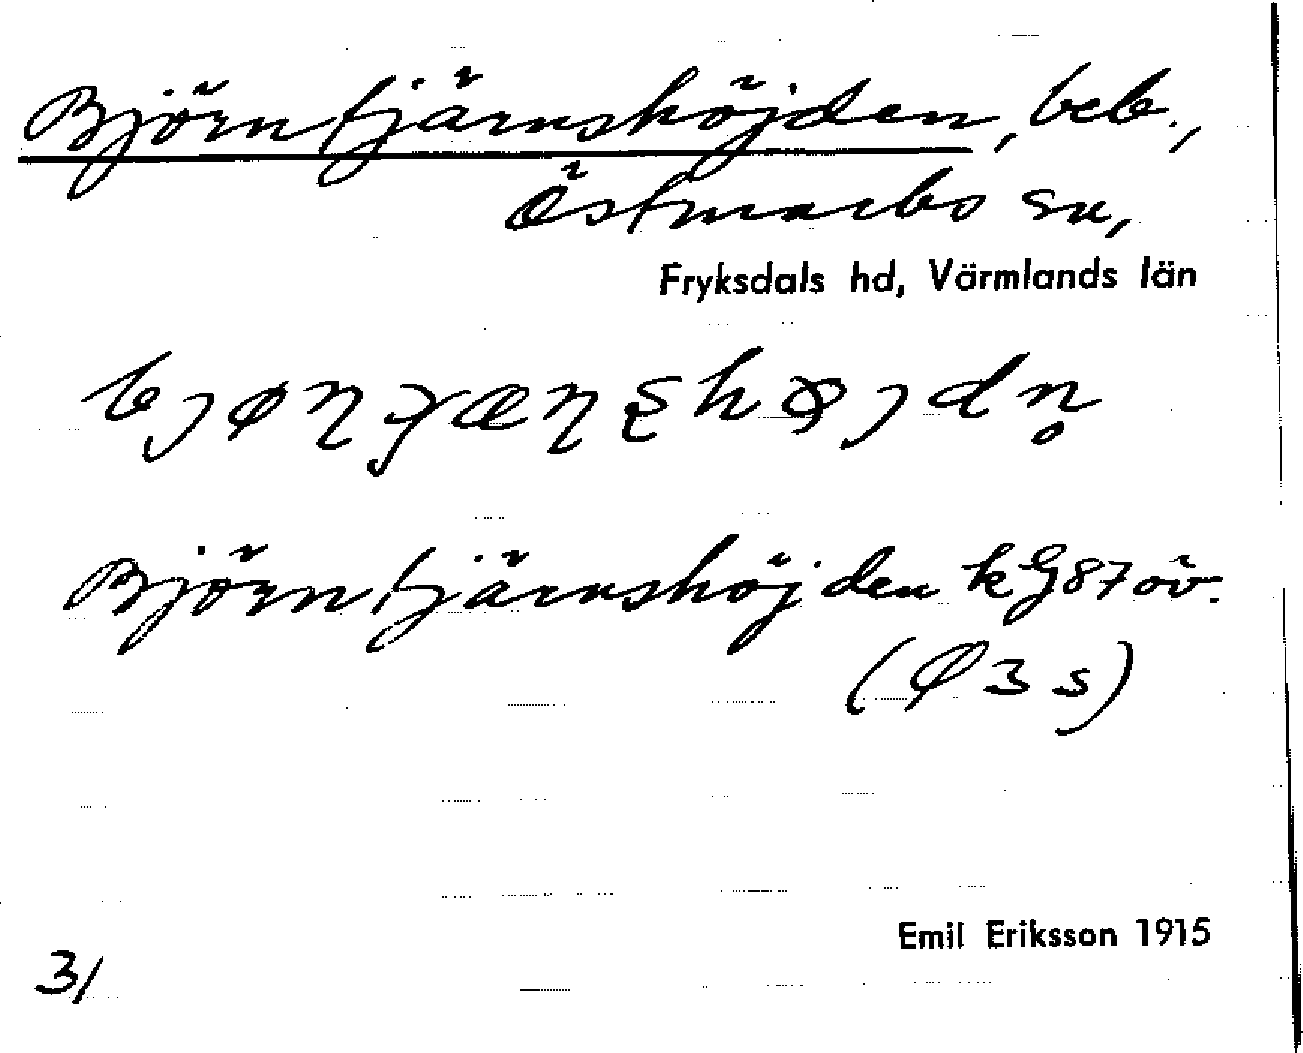 Björntjärnshöjden, beb.,
Östmarks sn,
Fryksdals hd, Värmlands län
Björntjärnshöjden kG87öv.
(Ø 3 s)
Emil Eriksson 1915
31